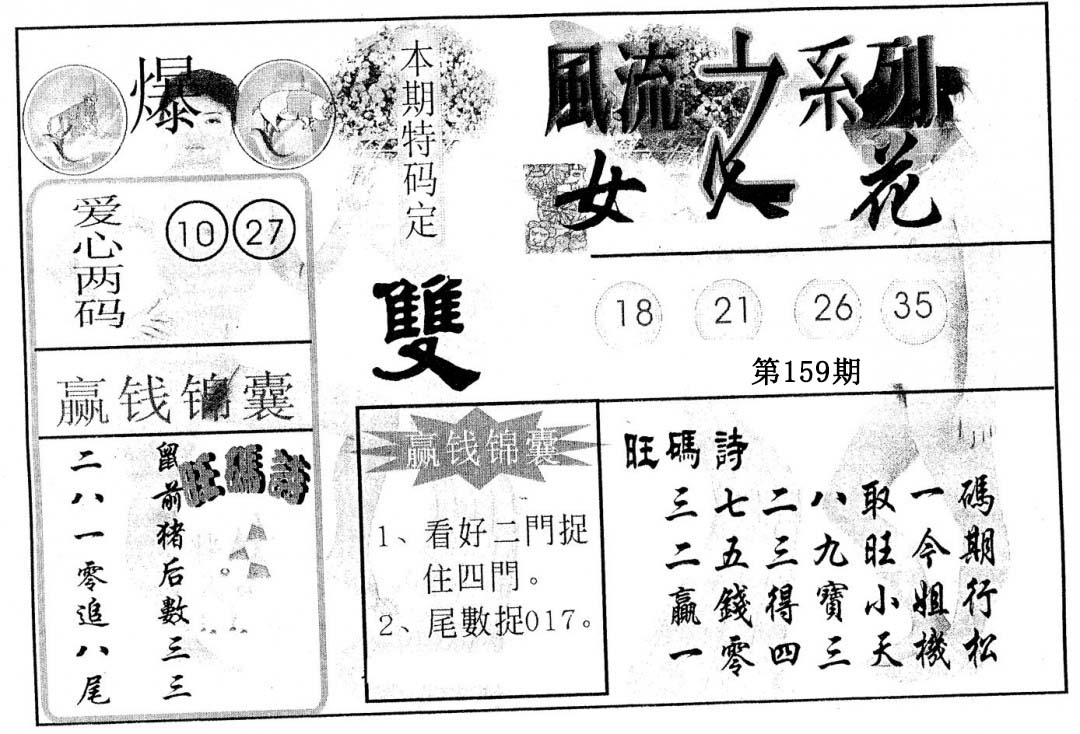 爆
爱心两码
10 27
赢钱锦囊
旺碼詩
鼠前猪后數三三
二八一零追八尾
本期特码定
雙
風流之系列
女人花
18 21 26 35
第159期
赢钱锦囊
1、看好二門捉
住四門。
2、尾數捉017。
旺碼詩
三七二八取一碼
二五三九旺今期
贏錢得寶小姐行
一零四三天機松